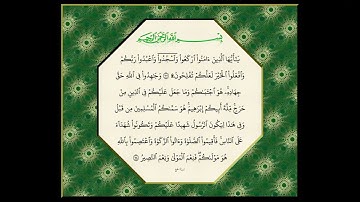 بِسْمِ اللَّهِ الرَّحْمَٰنِ الرَّحِيمِ
يَٰٓأَيُّهَا الَّذِينَ ءَامَنُوا ارْكَعُوا وَاسْجُدُوا وَاعْبُدُوا رَبَّكُمْ
وَافْعَلُوا الْخَيْرَ لَعَلَّكُمْ تُفْلِحُونَ ۩ وَجَٰهِدُوا فِي اللَّهِ حَقَّ
جِهَادِهِۦ هُوَ اجْتَبَىٰكُمْ وَمَا جَعَلَ عَلَيْكُمْ فِي الدِّينِ مِنْ
حَرَجٍ مِّلَّةَ أَبِيكُمْ إِبْرَٰهِيمَ هُوَ سَمَّىٰكُمُ الْمُسْلِمِينَ مِن قَبْلُ
وَفِي هَٰذَا لِيَكُونَ الرَّسُولُ شَهِيدًا عَلَيْكُمْ وَتَكُونُوا شُهَدَآءَ
عَلَى النَّاسِ فَأَقِيمُوا الصَّلَوٰةَ وَءَاتُوا الزَّكَوٰةَ وَاعْتَصِمُوا بِاللَّهِ
هُوَ مَوْلَىٰكُمْ فَنِعْمَ الْمَوْلَىٰ وَنِعْمَ النَّصِيرُ